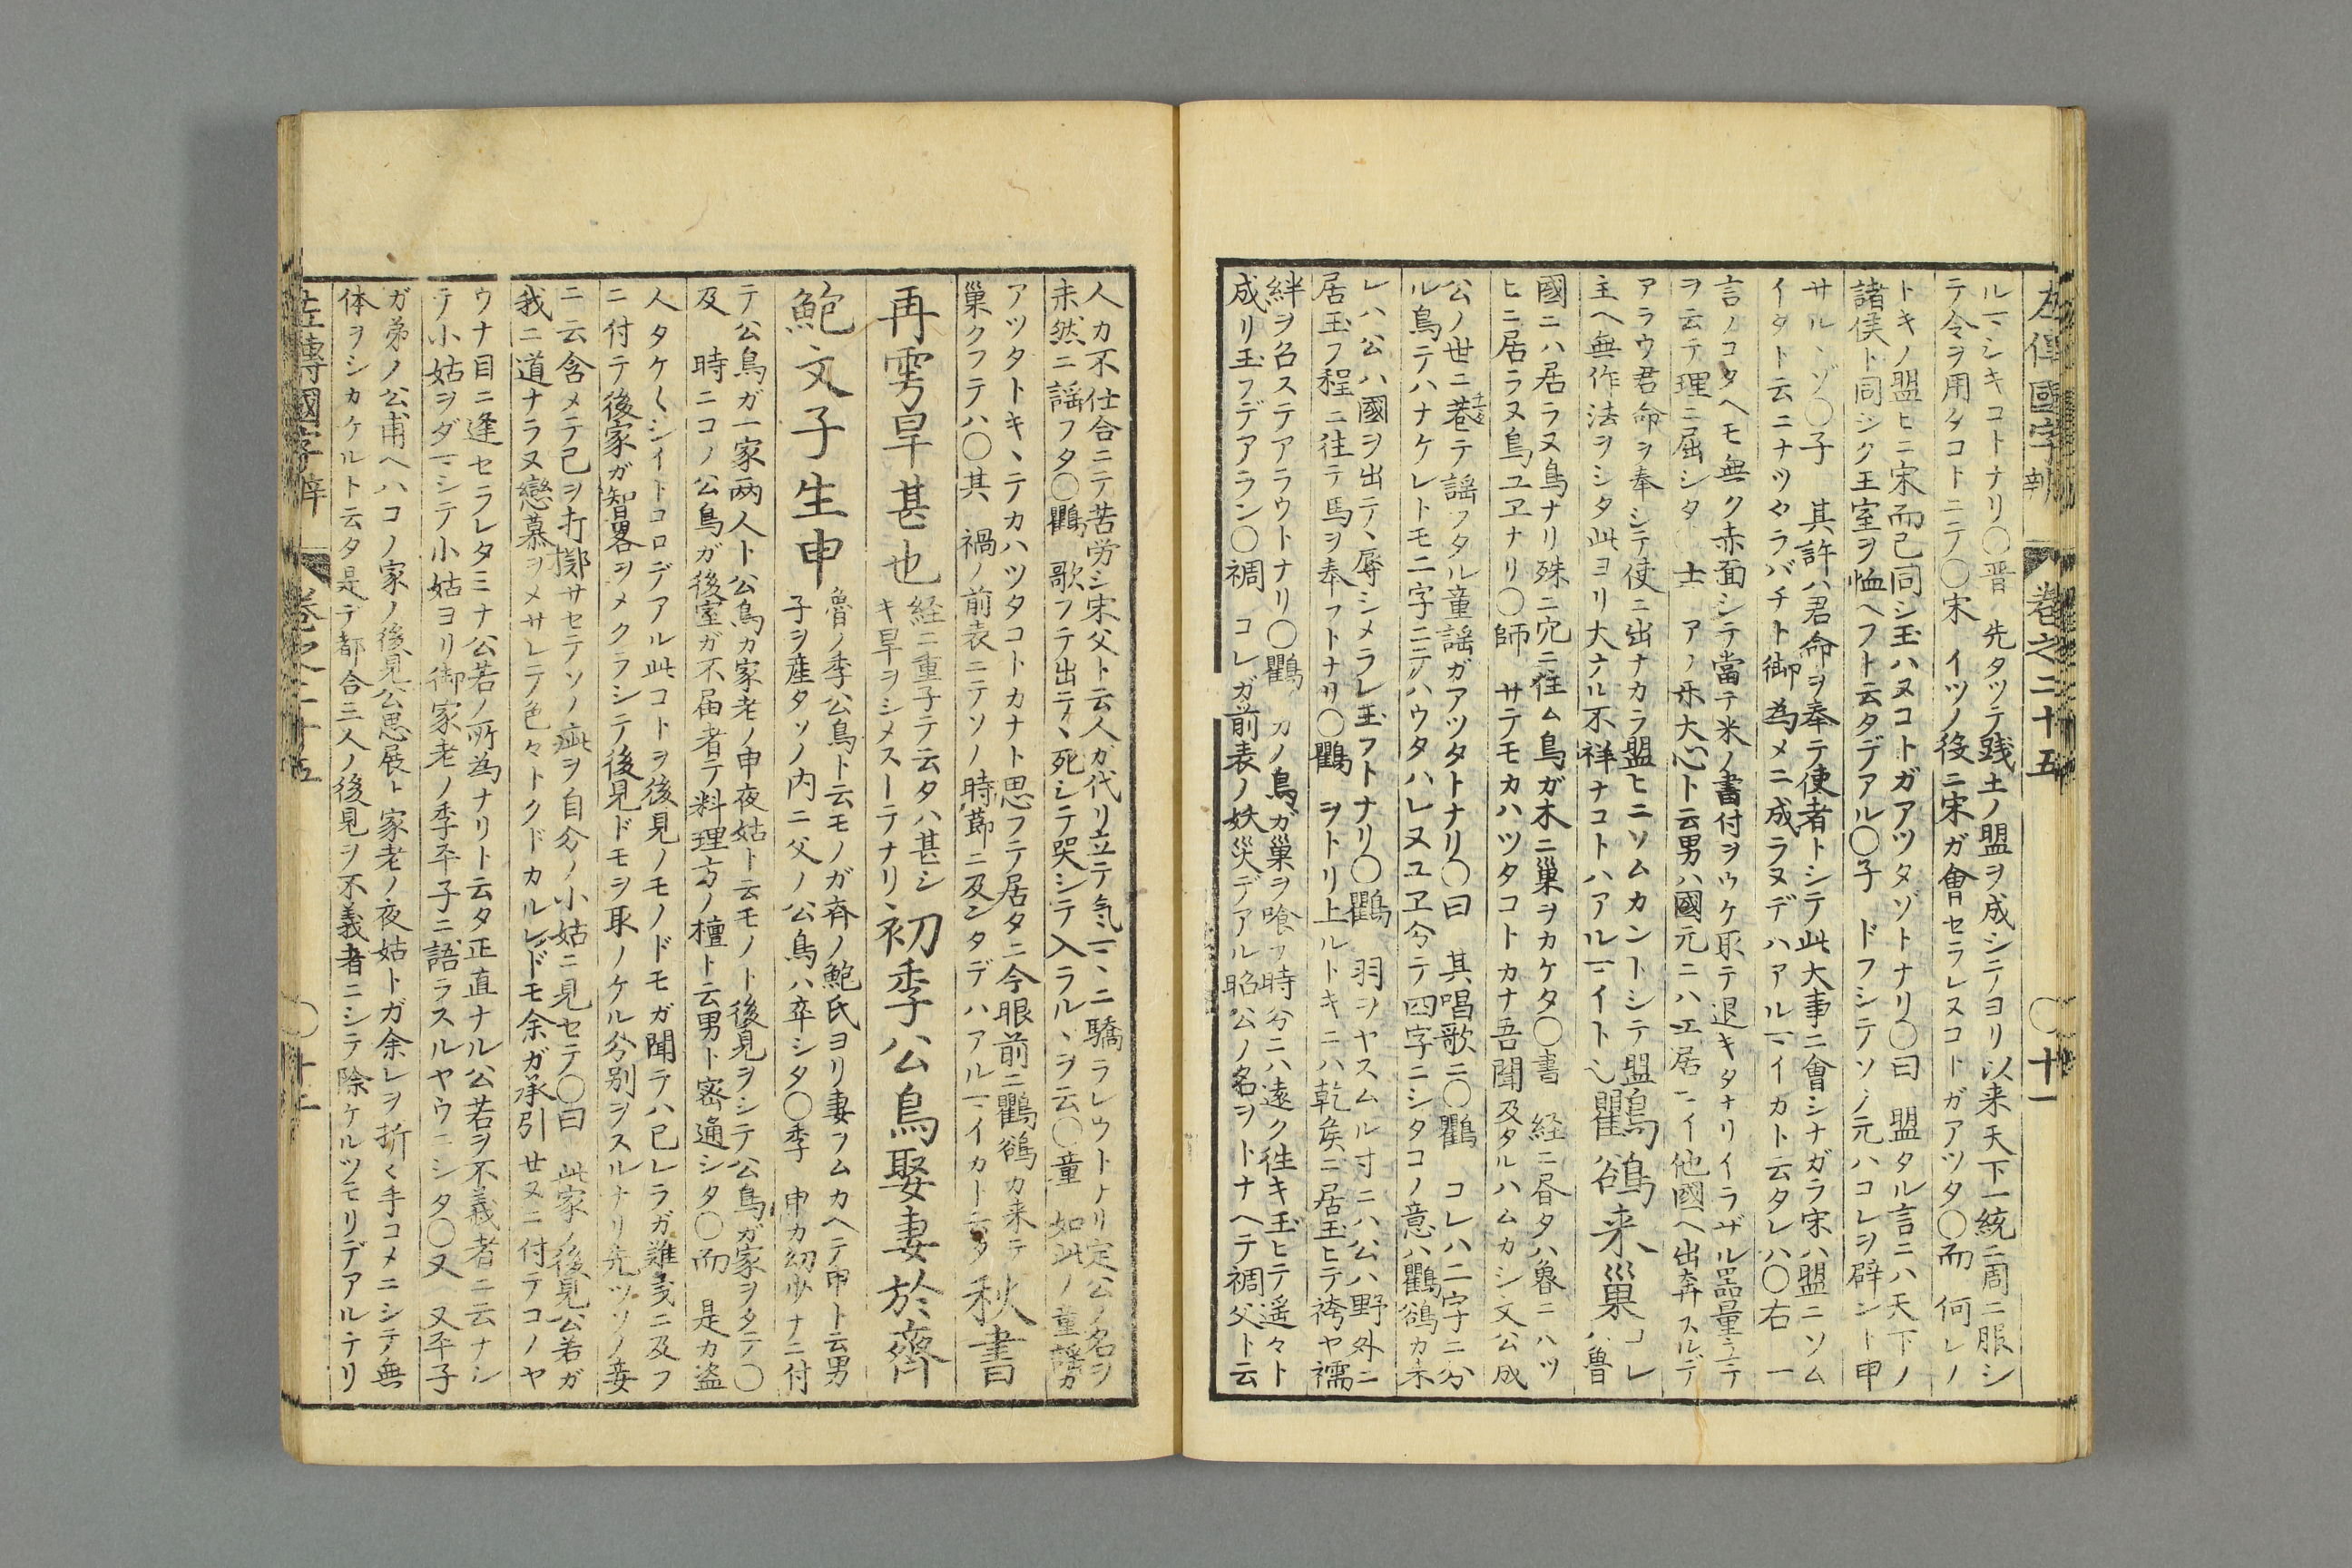 左傳國字辨 卷之二十五 〇十一
ルヿ、シキコトナリ〇晋 先タツテ践土ノ盟ヲ成シテヨリ以来天下一統ニ周ニ服シ
テ令ヲ用タコトニテ〇宋 イツノ後ニ宋ガ會セラレヌコトガアツタ〇而 何レノ
トキノ盟ヒニ宋而已同シ玉ハヌコトガアツタゾトナリ〇曰 盟タル言ニハ天下ノ
諸侯ト同シク王室ヲ恤ヘフト云タデアル〇子 ドフシテソノ元ハコレヲ辟ント申
サル、ゾ〇子 其許ハ君命ヲ奉テ使者トシテ此大事ニ會シナガラ宋ハ盟ニソム
イタト云ニナツタラバチト御為メニ成ラヌデハアルヿイカト云タレハ〇右 一
言ノコタヘモ無ク赤面シテ當テ米ノ書付ヲウケ取テ退キタナリイラザル器量立テ
ヲ云テ理ニ屈シタ 士 アノ樂大心ト云男ハ國元ニハエ居ヿイ他國ヘ出奔スルデ
アラウ君命ヲ奉シテ使ニ出ナカラ盟ヒニソムカントシテ盟
主ヘ無作法ヲシタ此ヨリ大ナル不祥ナコトハアルヿイト也
鸜鵒来巢
コレハ魯
國ニハ居ラヌ鳥ナリ殊ニ穴ニ住ム鳥ガ木ニ巢ヲカケタ〇書 経ニ昏タハ魯ニハツ
ヒニ居ラヌ鳥ユヱナリ〇師 サテモカハツタコトカナ吾聞及タルハムカシ文公成
公ノ世ニ巷テ謡フタル童謡ガアツタトナリ〇曰 其唱歌ニ〇鸜 コレハ二字ニ分
ル鳥テハナケレトモ二字ニテハウタハレヌユヱ分テ四字ニシタコノ意ハ鸜鵒カ来
レハ公ハ國ヲ出テ、辱シメラレ玉フトナリ〇鸜 羽ヲヤスムル寸ニハ公ハ野外ニ
居玉フ程ニ往テ馬ヲ奉フトナリ〇鸜 ヲトリ上ルトキニハ乾矦ニ居玉ヒテ袴ヤ襦
絆ヲ召ステアラウトナリ〇鸜 カノ鳥ガ巢ヲ喰フ時分ニハ遠ク徃キ玉ヒテ遥々ト
成リ玉フデアラン〇裯 コレガ前表ノ妖災デアル昭公ノ名ヲトナヘテ裯父ト云
人カ不仕合ニテ苦労シ宋父ト云人ガ代リ立テ気ヿ、ニ驕ラレウトナリ定公ノ名ヲ
未然ニ謡フタ〇鸜 歌フテ出テ、死シテ哭シテ入ラル、ヲ云〇童 如此ノ童謡カ
アツタトキ、テカハツタコトカナト思フテ居タニ今眼前ニ鸜鵒カ来テ
巢クフテハ〇其 禍ノ前表ニテソノ時節ニ及ンタデハアルヿイカト云タ
秋書
再雩旱甚也
経ニ重子テ云タハ甚シ
キ旱ヲシメスーテナリ
初季公鳥娶妻於齊
鮑文子生申
魯ノ季公鳥ト云モノガ斉ノ鮑氏ヨリ妻フムカヘテ申ト云男
子ヲ産タソノ内ニ父ノ公鳥ハ卒シタ〇季 申カ幼少ナニ付
テ公鳥ガ一家両人ト公鳥カ家老ノ申夜姑ト云モノト後見ヲシテ公鳥ガ家ヲタテ〇
及 時ニコノ公鳥ガ後室ガ不届者テ料理方ノ檀ト云男ト密通シタ〇而 是カ盗
人タケ〱シイトコロデアル此コトヲ後見ノモノドモガ聞テハ已レラガ難義ニ及フ
ニ付テ後家ガ智畧ヲメクラシテ後見ドモヲ取ノケル分別ヲスルナリ先ツソノ妾
ニ云含メテ已ヲ打擲サセテソノ疵ヲ自分ノ小姑ニ見セテ〇曰 此家ノ後見公若ガ
我ニ道ナラヌ戀慕ヲメサレテ色々トクドカルレドモ余ガ承引セヌニ付テコノヤ
ウナ目ニ逢セラレタミナ公若ノ所為ナリト云タ正直ナル公若ヲ不義者ニ云ナシ
テ小姑ヲダヿシテ小姑ヨリ御家老ノ季平子ニ語ラスルヤウニシタ〇又 又平子
ガ弟ノ公甫ヘハコノ家ノ後見公思展ト家老ノ夜姑トガ余レヲ折々手コメニシテ無
体ヲシカケルト云タ是デ都合三人ノ後見ヲ不義者ニシテ除ケルツモリデアルテリ
左傳國字辨 卷之二十五